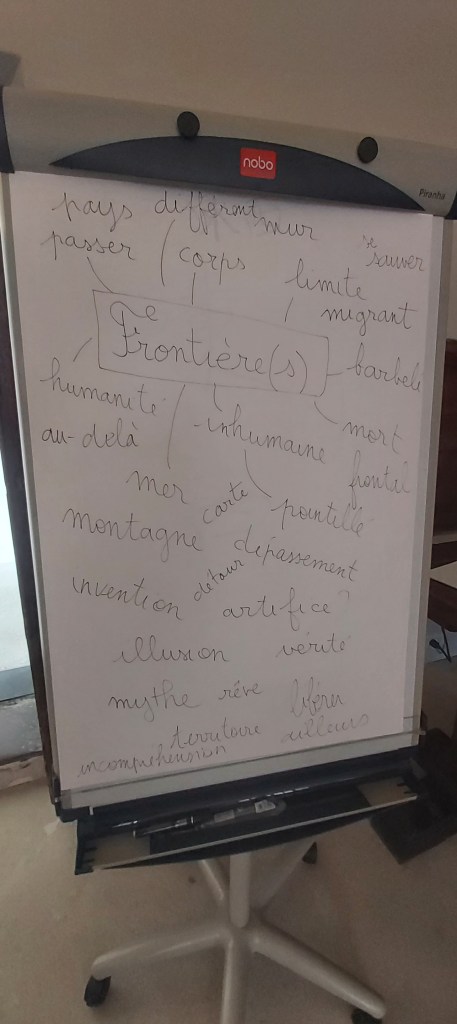 nobo
Piranha
pays différent mur
passer corps se sauver
limite
migrant
Frontière(s)
barbelé
humanité
mort
au-delà
-inhumaine
frontal
mer carte pointillé
montagne
dépassement
invention détour artifice
illusion vérité
mythe rêve libérer
territoire ailleurs
incompréhension